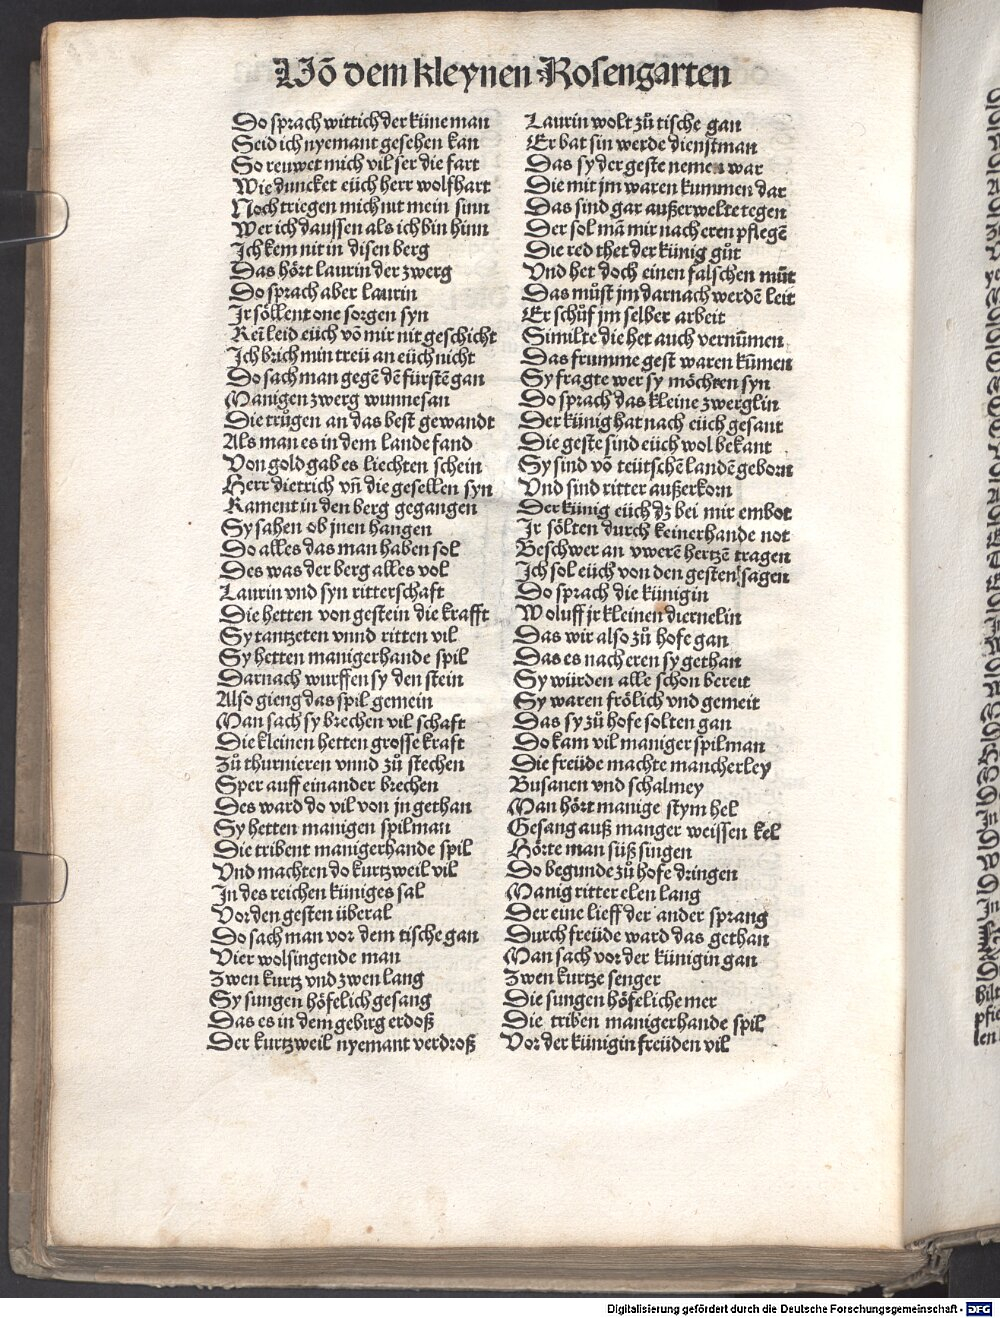 Vō dem kleynen Rosengarten
Do sprach wittich der küne man
Seid ich nyemant gesehen kan
So reuwet mich vil ser die fart
Wie duncket eüch herr wolfhart
Noch triegen mich nit mein sinn
Wer ich daussen als ich bin hinn
Ich kem nit in disen berg
Das hört laurin der zwerg
Do sprach aber laurin
Ir söllent one sorgen syn
Kei leid eüch vō mir nit geschicht
Ich brich min treü an eüch nicht
Do sach man gegē dē fürstē gan
Manigen zwerg wunnesan
Die trůgen an das best gewandt
Als man es in dem lande fand
Von gold gab es liechten schein
Herr dietrich vn̄ die gesellen syn
Kament in den berg gegangen
Sy sahen ob jnen hangen
Do alles das man haben sol
Des was der berg alles vol
Laurin vnd syn ritterschaft
Die hetten von gestein die krafft
Sy tantzeten vnnd ritten vil
Sy hetten manigerhande spil
Darnach wurffen sy den stein
Also gieng das spil gemein
Man sach sy brechen vil schaft
Die kleinen hetten grosse kraft
Zů thurnieren vnnd zů stechen
Sper auff einander brechen
Des ward do vil von jn gethan
Sy hetten manigen spilman
Die tribent manigerhande spil
Vnd machten do kurtzweil vil
In des reichen küniges sal
Vor den gesten überal
Do sach man vor dem tische gan
Vier wolsingende man
Zwen kurtz vnd zwen lang
Sy sungen höfelich gesang
Das es in dem gebirg erdoß
Der kurtzweil nyemant verdroß
Laurin wolt zů tische gan
Er bat sin werde dienstman
Das sy der geste nemen war
Die mit jm waren kummen dar
Das sind gar außerwelte tegen
Der sol mā mir nach eren pflegē
Die red thet der künig gůt
Vnd het doch einen falschen můt
Das můst jm darnach werdē leit
Er schůf jm selber arbeit
Similte die het auch vernūmen
Das frumme gest waren kūmen
Sy fragte wer sy möchten syn
Do sprach das kleine zwerglin
Der künig hat nach eüch gesant
Die geste sind eüch wol bekant
Sy sind vō teütschē landē geborn
Vnd sind ritter außerkorn
Der künig eüch dz bei mir embot
Ir sölten durch keinerhande not
Beschwer an vwerē hertzē tragen
Ich sol eüch von den gesten sagen
Do sprach die künigin
Woluff jr kleinen diernelin
Das wir also zů hofe gan
Das es nach eren sy gethan
Sy würden alle schon bereit
Sy waren frölich vnd gemeit
Das sy zů hofe solten gan
Do kam vil maniger spilman
Die freüde machte mancherley
Busanen vnd schalmey
Man hört manige stym hel
Gesang auß manger weissen kel
Hörte man süß singen
Do begunde zů hofe dringen
Manig ritter elen lang
Der eine lieff der ander sprang
Durch freüde ward das gethan
Man sach vor der künigin gan
Zwen kurtze senger
Die sungen höfeliche mer
Die triben manigerhande spil
Vor der künigin freüden vil
Digitalisierung gefördert durch die Deutsche Forschungsgemeinschaft - DFG